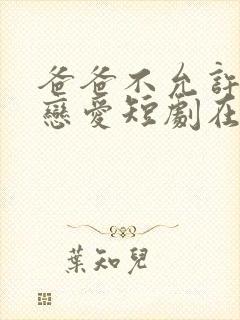 爸爸不允許
戀愛短劇在
葉知兒